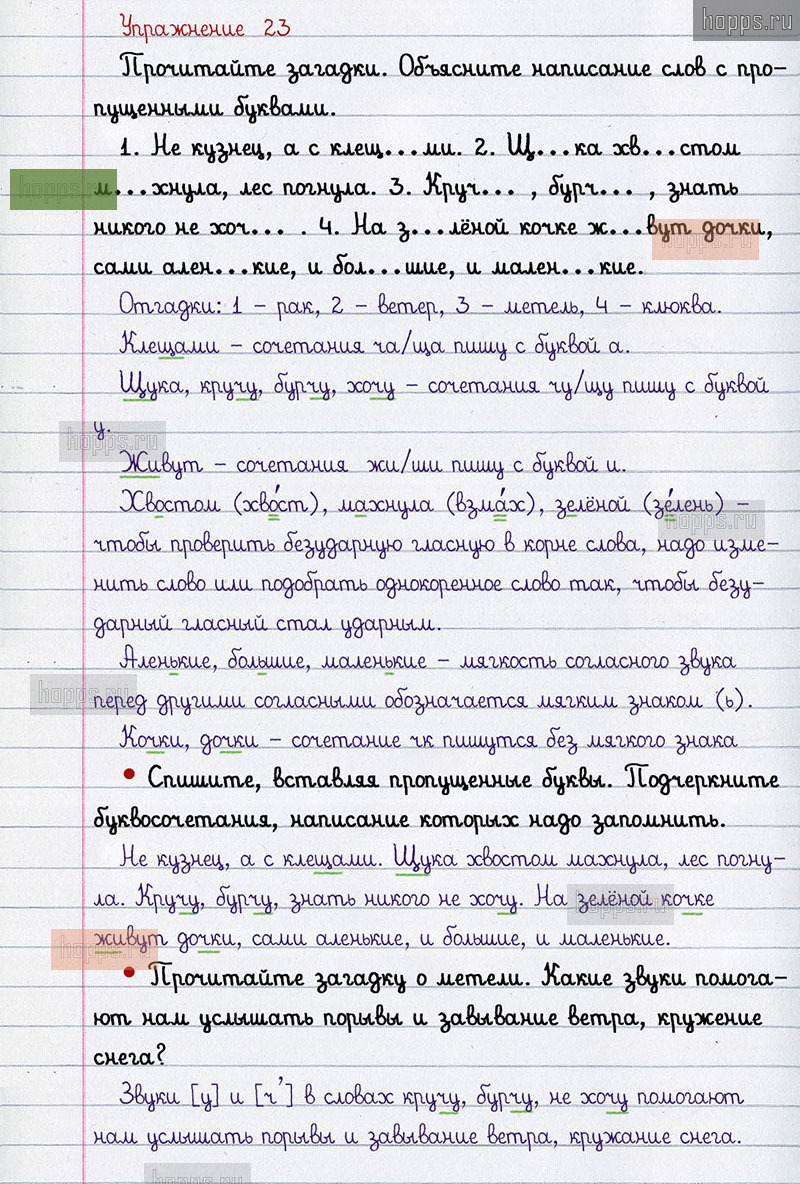 hopps.ru
Упражнение 23
Прочитайте загадки. Объясните написание слов с про-
пущенными буквами.
1. Не кузнец, а с клещ...ми. 2. Щ...ка хв...стом
hopps.ru
м...хнула, лес погнула. 3. Круч... , бурч... , знать
никого не хоч... . 4. На з...лёной кочке ж...вут дочки,
hopps.ru
сами ален...кие, и бол...шие, и мален...кие.
Отгадки: 1 – рак, 2 – ветер, 3 – метель, 4 – клюква.
Клещами – сочетания ча/ща пишу с буквой а.
Щука, кручу, бурчу, хочу – сочетания чу/щу пишу с буквой
у.
hopps.ru
Живут – сочетания жи/ши пишу с буквой и.
Хвостом (хво́ст), махнула (взма́х), зелёной (зе́лень) –
hopps.ru
чтобы проверить безударную гласную в корне слова, надо изме-
нить слово или подобрать однокоренное слово так, чтобы безу-
дарный гласный стал ударным.
Аленькие, большие, маленькие – мягкость согласного звука
hopps.ru
перед другими согласными обозначается мягким знаком (ь).
Кочки, дочки – сочетание чк пишутся без мягкого знака
• Спишите, вставляя пропущенные буквы. Подчеркните
буквосочетания, написание которых надо запомнить.
Не кузнец, а с клещами. Щука хвостом махнула, лес погну-
ла. Кручу, бурчу, знать никого не хочу. На зелёной кочке
hopps.ru
живут дочки, сами аленькие, и большие, и маленькие.
hopps.ru
• Прочитайте загадку о метели. Какие звуки помога-
ют нам услышать порывы и завывание ветра, кружение
снега?
Звуки [у] и [ч'] в словах кручу, бурчу, не хочу помогают
нам услышать порывы и завывание ветра, кружание снега.
hopps.ru